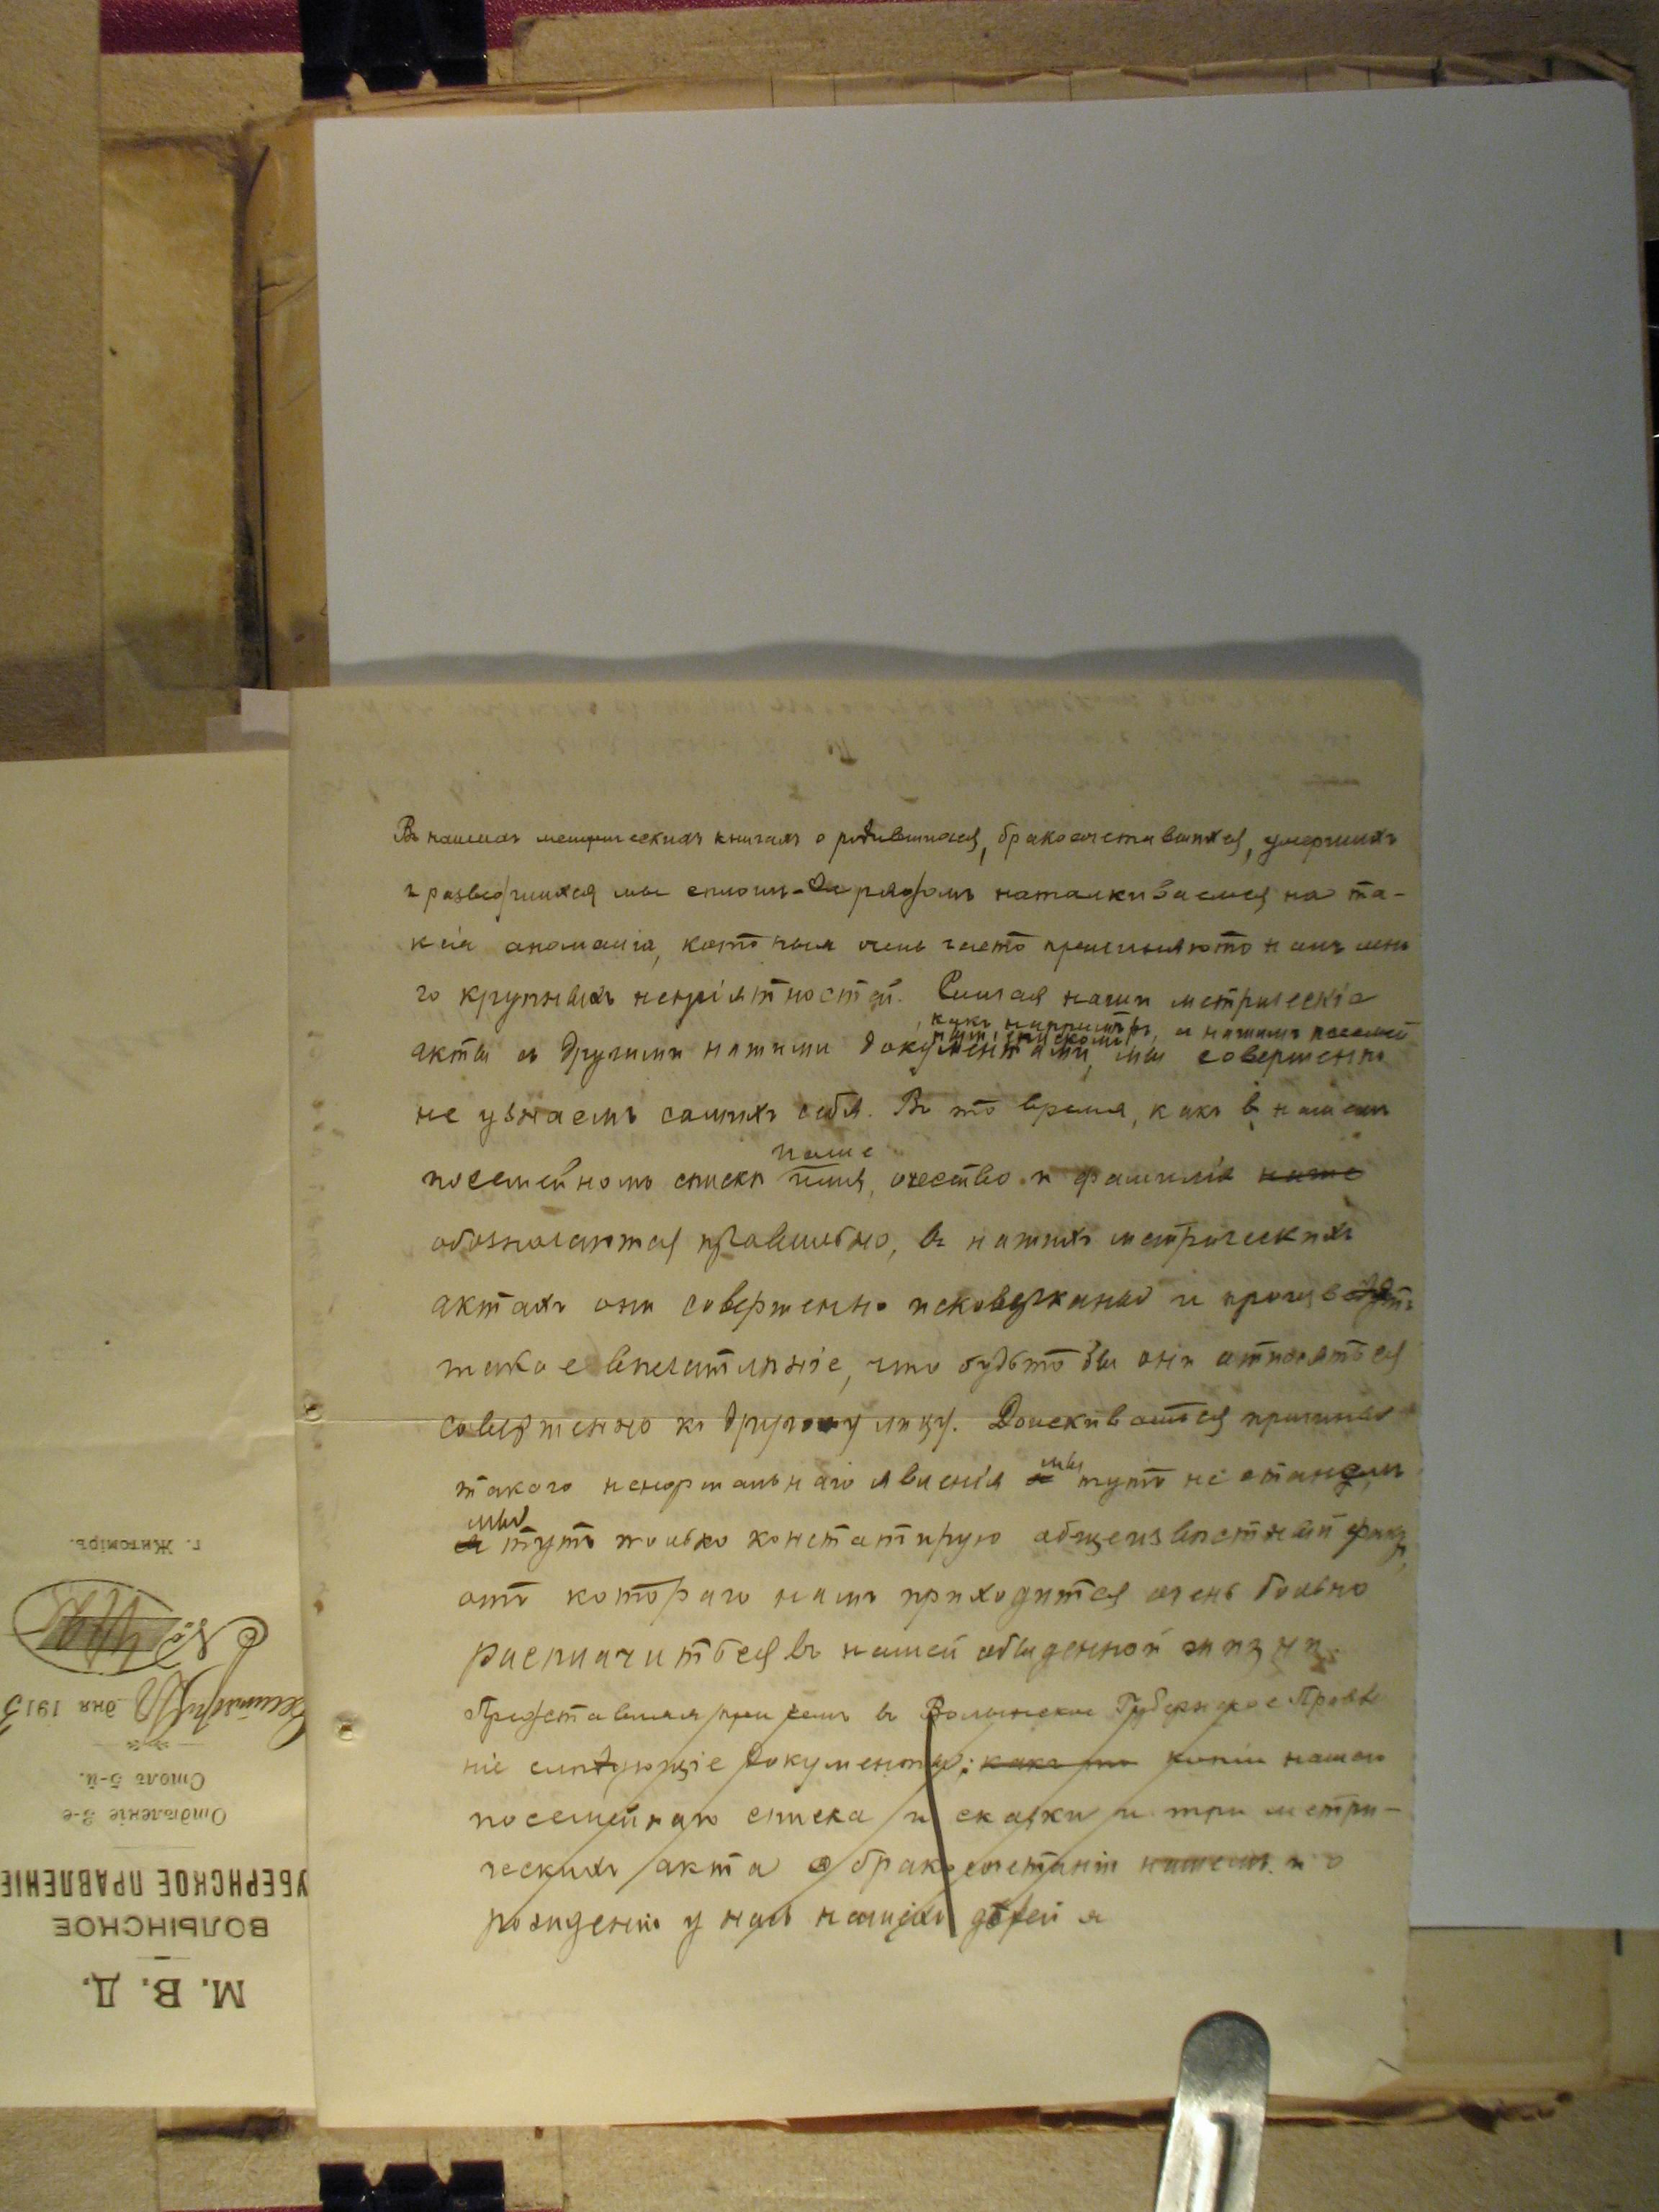 Въ нашихъ метрическихъ книгахъ о родившихся, бракосочетавшихся, умершихъ
и разведшихся мы сплошь-да рядомъ наталкиваемся на та-
кія аномаліи, которыя очень часто причиняютъ намъ мно
го крупныхъ непріятностей. Сличая наши метрическіе
какъ напримѣръ, съ нашимъ посемей
нымъ спискомъ
акты съ другими нашими документами, мы совершенно
не узнаемъ самихъ себя. Въ то время, какъ въ нашемъ
наше
посемейномъ спискѣ имя, отчество и фамилія наше
обозначаются правильно, въ нашихъ метрическихъ
актахъ они совершенно исковерканы и производятъ
такое впечатлѣніе, что будьто бы они относяться
совершенно къ другому лицу. Доискиваться причины
мы
такого ненормальнаго явленія я тутъ не станемъ
мы
я тутъ только констатирую общеизвѣстный фактъ,
отъ котораго намъ приходится очень больно
расплачиться въ нашей обыденной жизни.
Представляя при семъ въ Волынское Губернское Правле
ніе слѣдующіе документы: какъ то копіи нашего
посемейнаго списка и сказки и три метри-
ческихъ акта о бракосочетаніи нашемъ и о
рожденіи у насъ нашихъ дѣтей я
М. В. Д.
ВОЛЫНСКОЕ
УБЕРНСКОЕ ПРАВЛЕНІЕ
Отдѣленіе 3-е
Столъ 5-й.
дня 1913
№
г. Житоміръ.